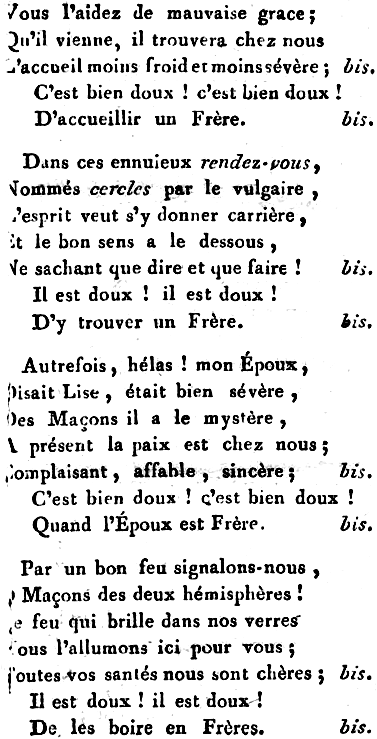 Vous l'aidez de mauvaise grace ;
Qu'il vienne, il trouvera chez nous
L'accueil moins froid et moins sévère ; bis.
C'est bien doux ! c'est bien doux !
D'accueillir un Frère. bis.
Dans ces ennuieux rendez-vous,
Nommés cercles par le vulgaire,
L'esprit veut s'y donner carrière,
Et le bon sens a le dessous,
Ne sachant que dire et que faire ! bis.
Il est doux ! il est doux !
D'y trouver un Frère. bis.
Autrefois, hélas ! mon Époux,
Disait Lise, était bien sévère,
Des Maçons il a le mystère,
A présent la paix est chez nous ;
Complaisant, affable, sincère ; bis.
C'est bien doux ! c'est bien doux !
Quand l'Époux est Frère. bis.
Par un bon feu signalons-nous,
Maçons des deux hémisphères !
Le feu qui brille dans nos verres
Nous l'allumons ici pour vous ;
Toutes vos santés nous sont chères ; bis.
Il est doux ! il est doux !
De les boire en Frères. bis.